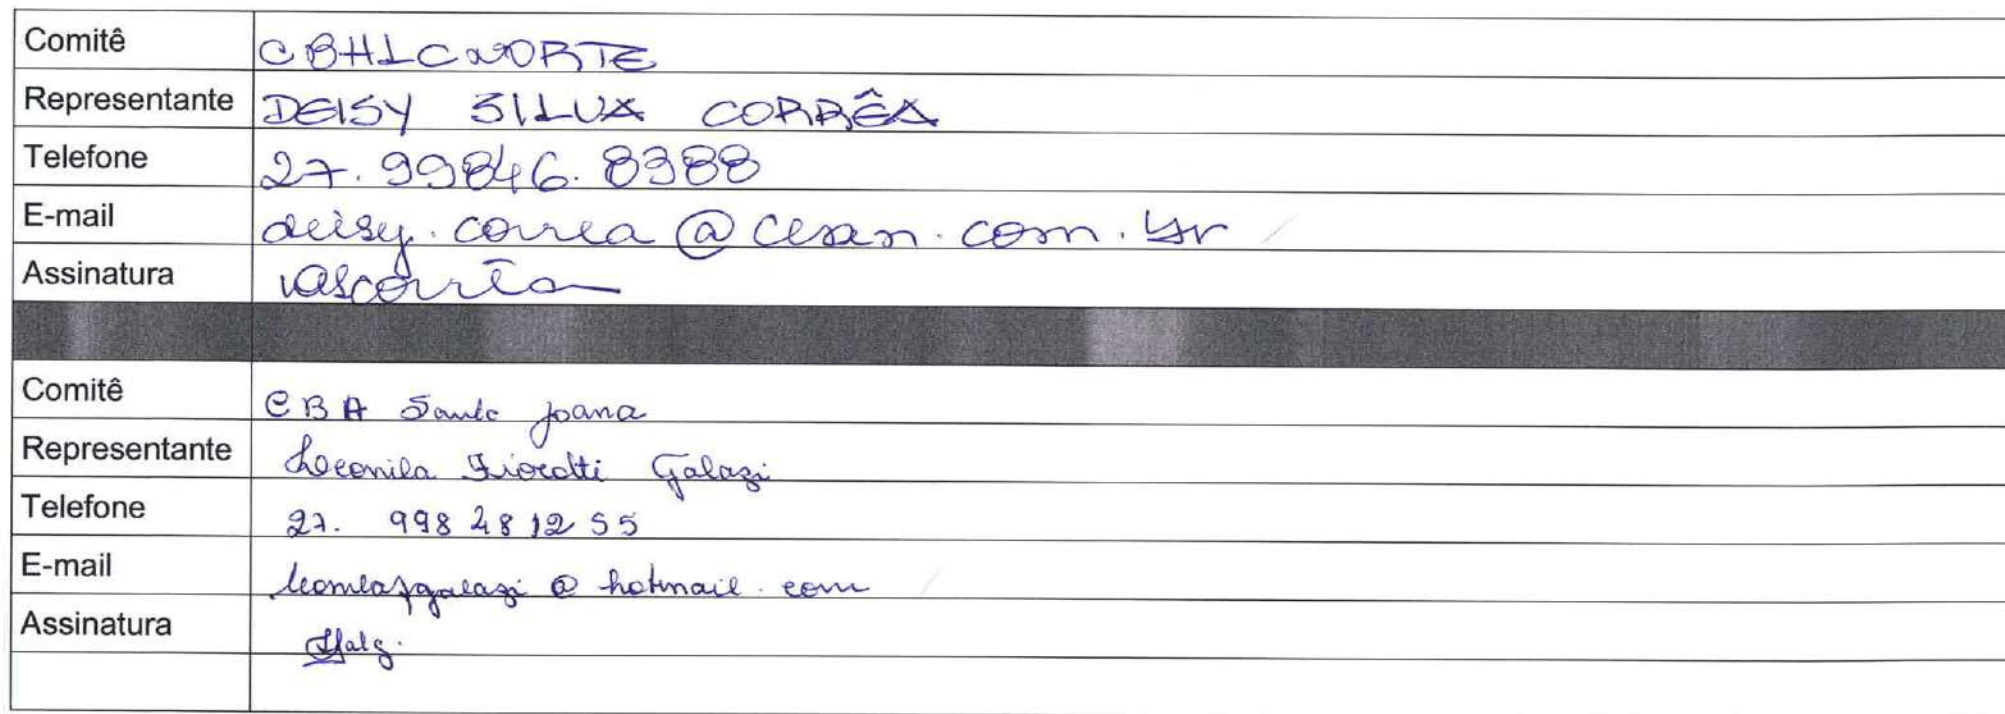 Comitê CBHLCNORTE
Representante DEISY SILVA CORRÊA
Telefone 27. 99846. 8388
E-mail deisy.correa@cesan.com.br
Assinatura
Comitê CBH Santa Joana
Representante Leonila Fiorotti Galazi
Telefone 27. 998 2812 55
E-mail @ hotmail.com
Assinatura